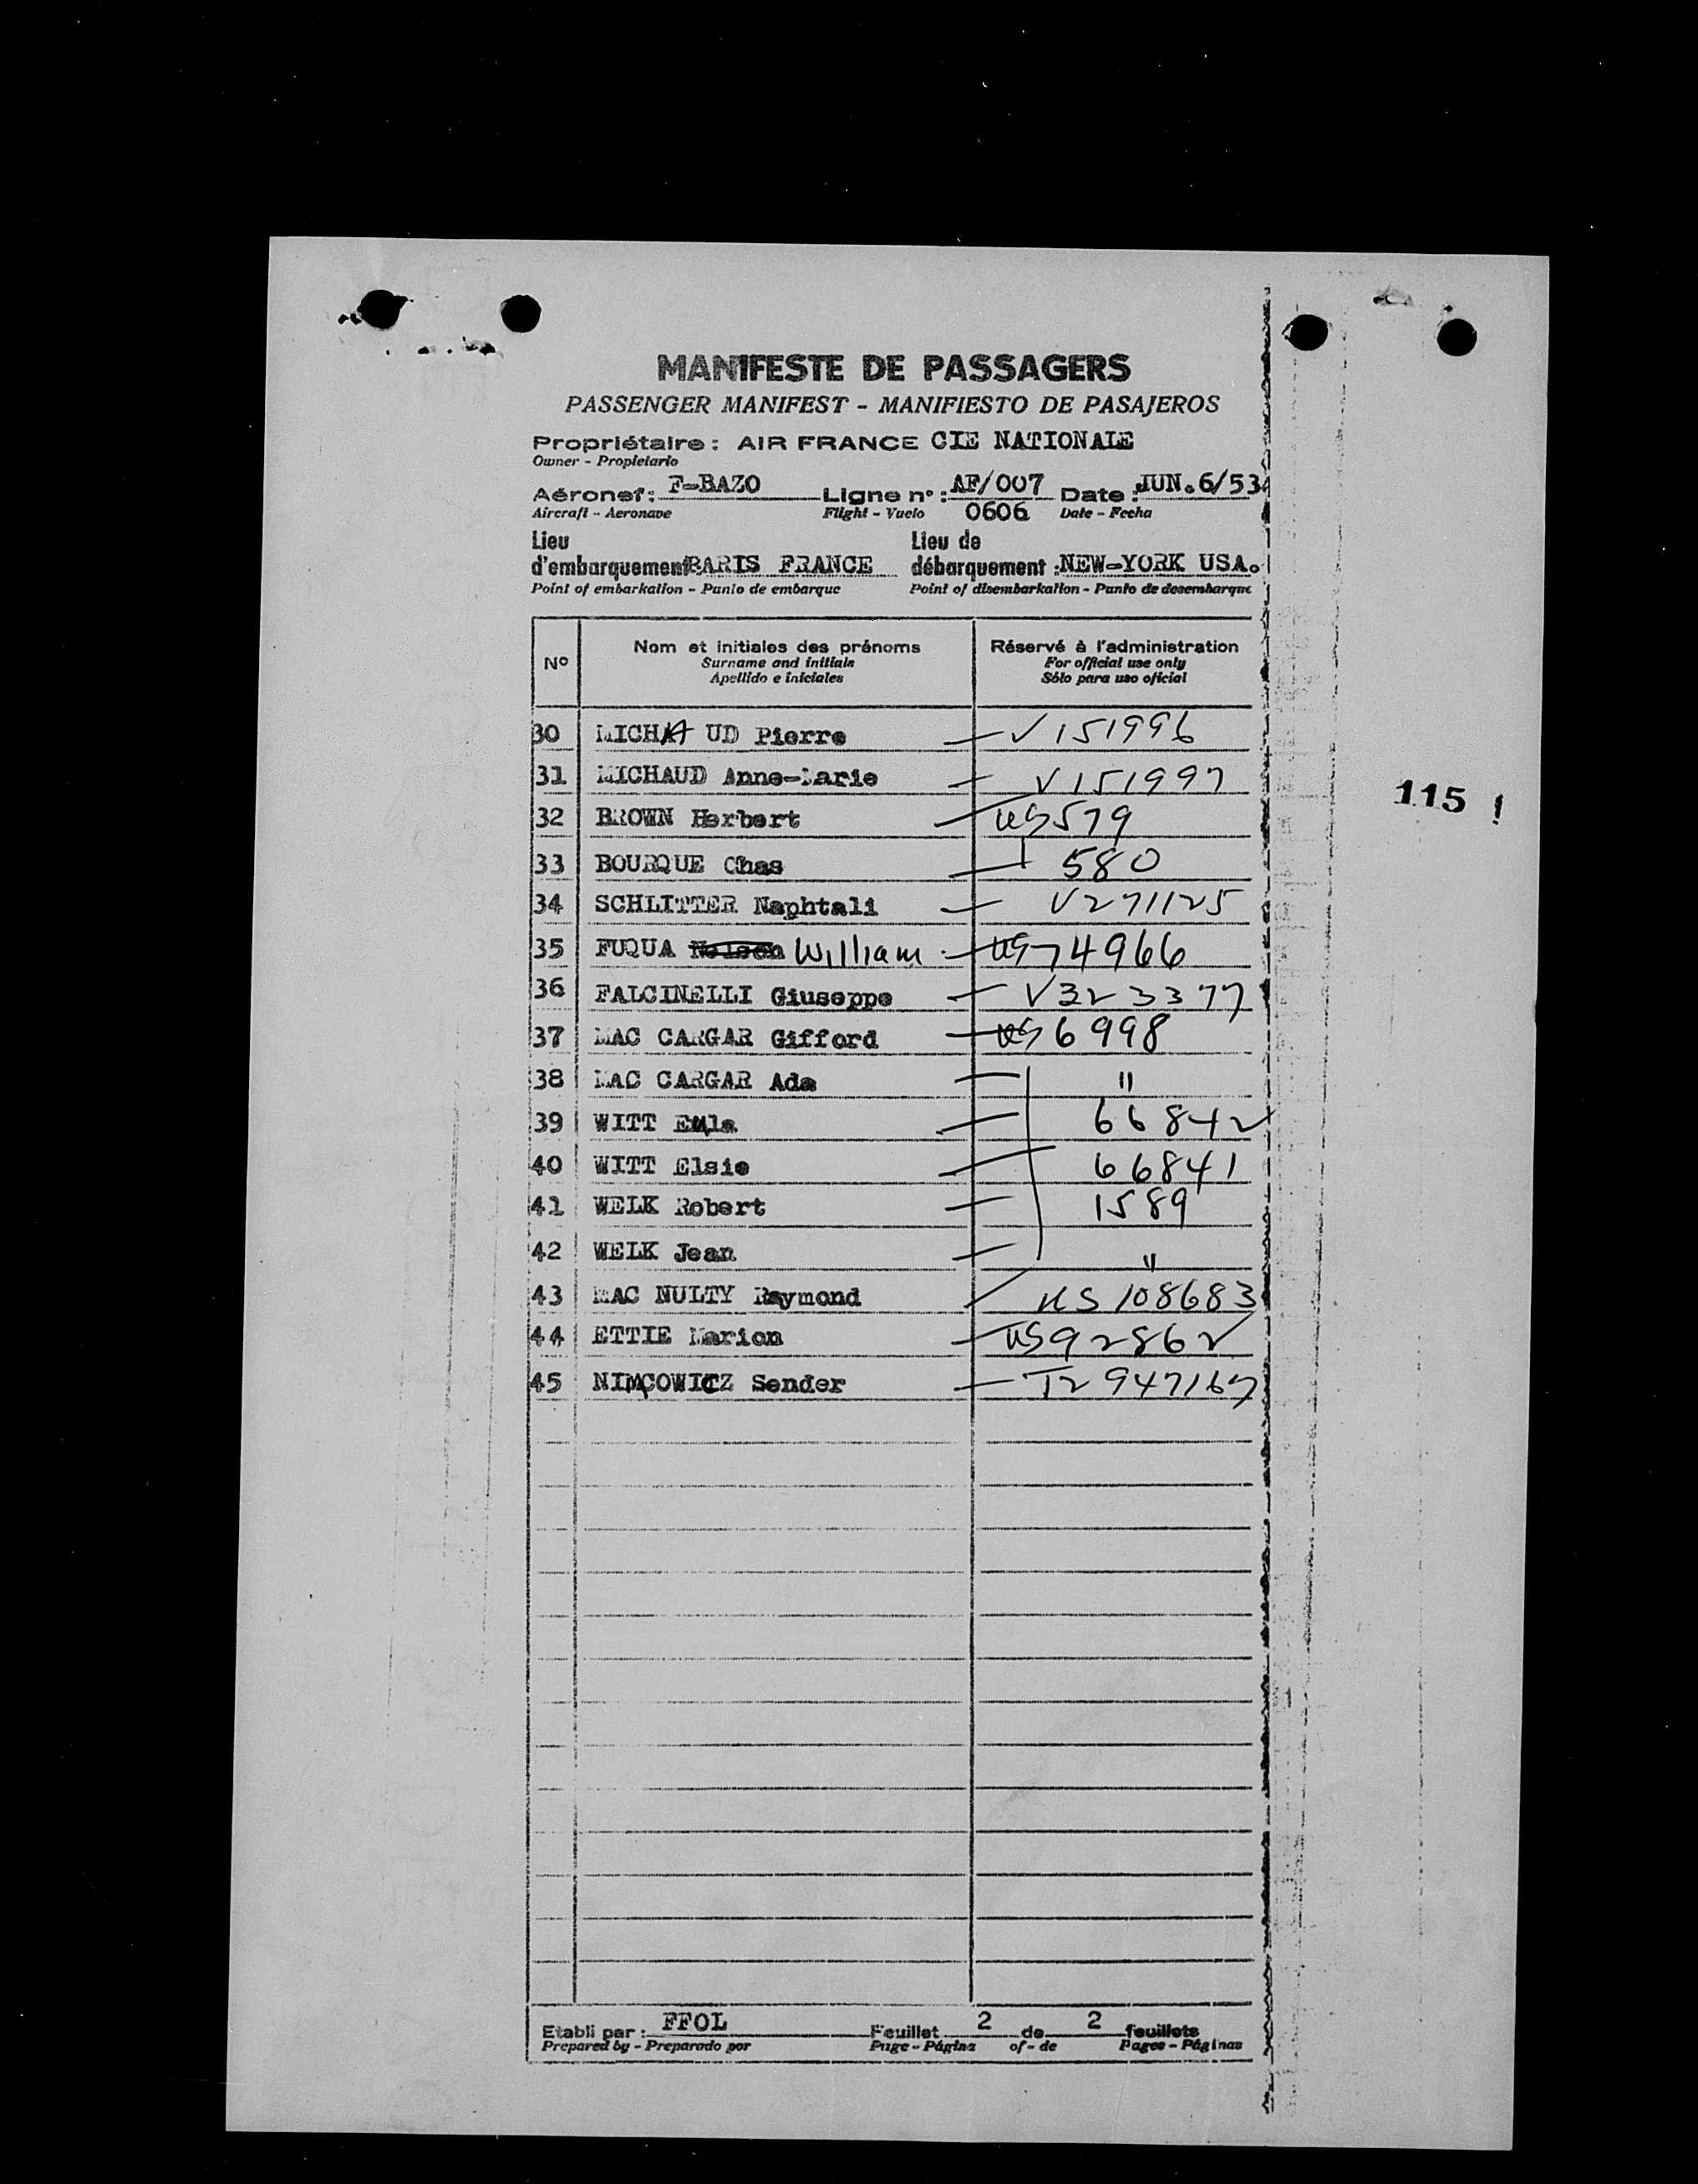 MANIFESTE DE PASSAGERS
PASSENGER MANIFEST - MANIFIESTO DE PASAJEROS
Propriétaire : AIR FRANCE CIE NATIONALE
Owner - Propietario
Aéronef: F-BAZO Ligne n° : AF/007 Date : JUN.6/53.
Aircraft - Aeronave Flight - Vuelo 0606 Date - Fecha
Lieu Lieu de
d'embarquement PARIS FRANCE débarquement : NEW-YORK USA.
Point of embarkation - Punto de embarque Point of disembarkation - Punto de desembarque
Nom et initiales des prénoms Réservé à l'administration
N° Surname and initials For official use only
Apellido e iniciales Sólo para uso oficial
30 MICHAUD Pierre V 151996
31 MICHAUD Anne-Marie V 151997
115
32 BROWN Herbert US 579
33 BOURQUE Chas 580
34 SCHLITTER Naphtali V 271125
35 FUQUA Nelson William US 74966
36 FALCINELLI Giuseppe V 323377
37 MAC CARGAR Gifford US 6998
38 MAC CARGAR Ada "
39 WITT 66842
40 WITT Elsie 66841
41 WELK Robert 1589
42 WELK Jean "
43 MAC NULTY Raymond US 108683
44 ETTIE Marion US 92862
45 NIMCOWICZ Sender T2 947167
Etabli par : FFOL Feuillet 2 de 2 feuillets
Prepared by - Preparado por Page - Página of - de Pages - Páginas